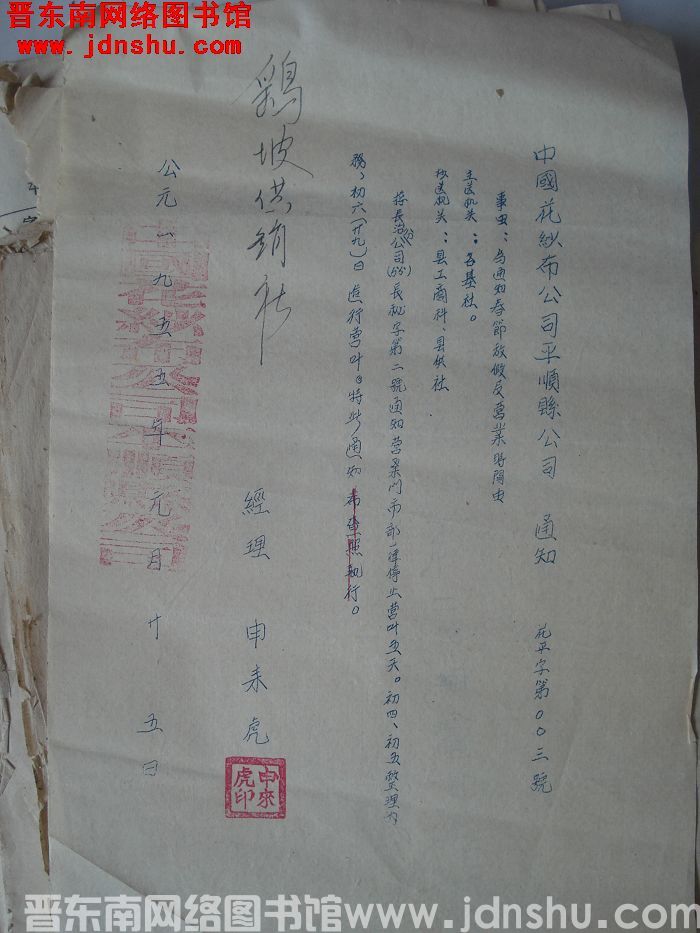 晋东南网络图书馆
www.jdnshu.com
中國花紗布公司平順縣公司 通知 花平字第00三號
事由：為通知春節放假及營業時間由
主送机关：各基社。
抄送机关：县工商科、县供社
接長治分公司(55)長秘字第二號通知营業门市部一律停止营叶五天。初四、初五整理内
務，初六(廿九)日進行营叶。特此通知 希查照执行。
鷄坡供銷社
經理 申來虎
申來虎印
公元一九五五年元月廿五日
中國花紗布公司平順縣公司
晋东南网络图书馆www.jdnshu.com